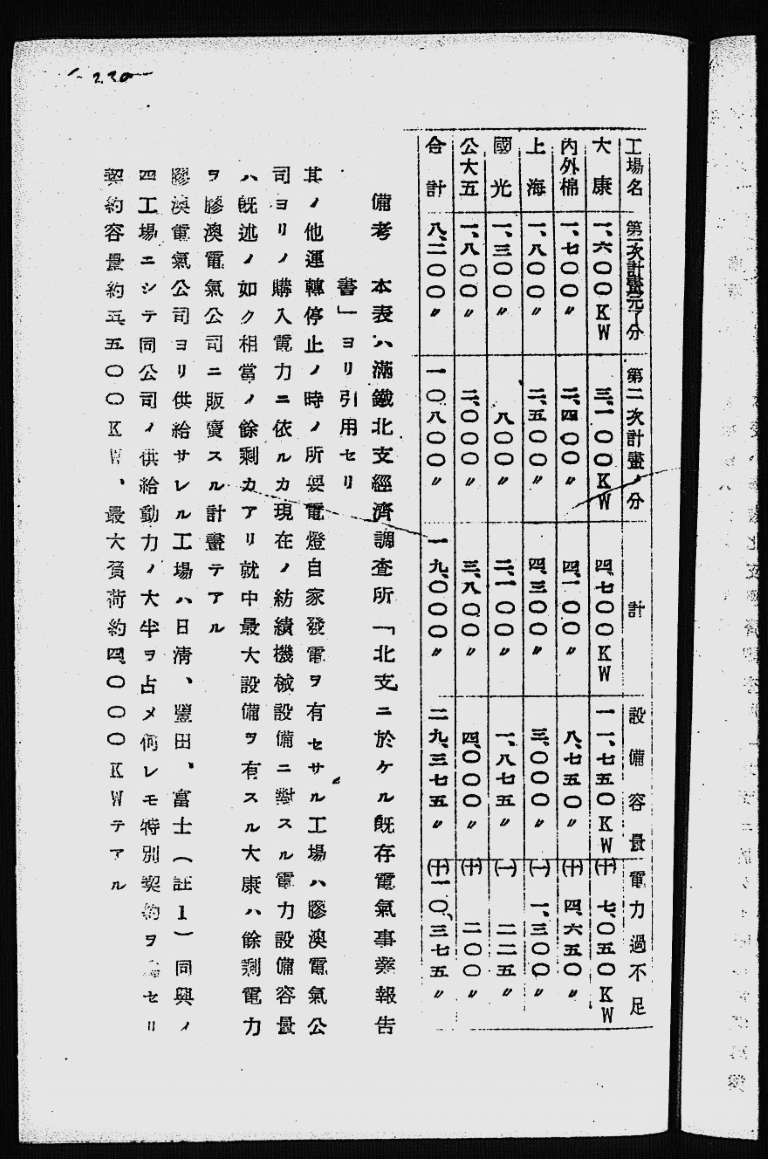 220
工場名 第一次計畫完了分 第二次計畫ノ分 計 設備容量 電力過不足
大康 一、六〇〇KW 三、一〇〇KW 四、七〇〇KW 一一、七五〇KW (十) 七、〇五〇KW
内外棉 一、七〇〇〃 二、四〇〇〃 四、一〇〇〃 八、七五〇〃 (十) 四、六五〇〃
上海 一、八〇〇〃 二、五〇〇〃 四、三〇〇〃 三、〇〇〇〃 (一) 一、三〇〇〃
國光 一、三〇〇〃 八〇〇〃 二、一〇〇〃 一、八七五〃 (一) 二二五〃
公大五 一、八〇〇〃 二、〇〇〇〃 三、八〇〇〃 四、〇〇〇〃 (十) 二〇〇〃
合計 八、二〇〇〃 一〇八〇〇〃 一九、〇〇〇〃 二九、三七五〃 (十)一〇、三七五〃
備考 本表ハ滿鐵北支經濟調査所「北支ニ於ケル既存電氣事業報告
書」ヨリ引用セリ
其ノ他運轉停止ノ時ノ所要電燈自家發電ヲ有セサル工場ハ膠澳電氣公
司ヨリノ購入電力ニ依ルカ現在ノ紡績機械設備ニ對スル電力設備容量
ハ既述ノ如ク相當ノ餘剩カアリ就中最大設備ヲ有スル大康ハ餘剩電力
ヲ膠澳電氣公司ニ販賣スル計畫テアル
膠澳電氣公司ヨリ供給サレル工場ハ日清、豐田、富士(註1)同興ノ
四工場ニシテ同公司ノ供給動力ノ大半ヲ占メ何レモ特別契約ヲ セリ
契約容量約五五〇〇KW、最大負荷約四〇〇〇KWテアル